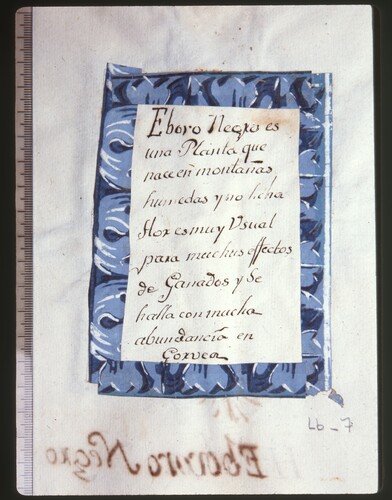 Eboro Negro es
una Planta que
nace en montañas
humedas y no hecha
flor es muy Usual
para muchus effectos
de Ganados y Se
halla con mucha
abundancia en
Gorvea
Lb-7
Eboro Negro